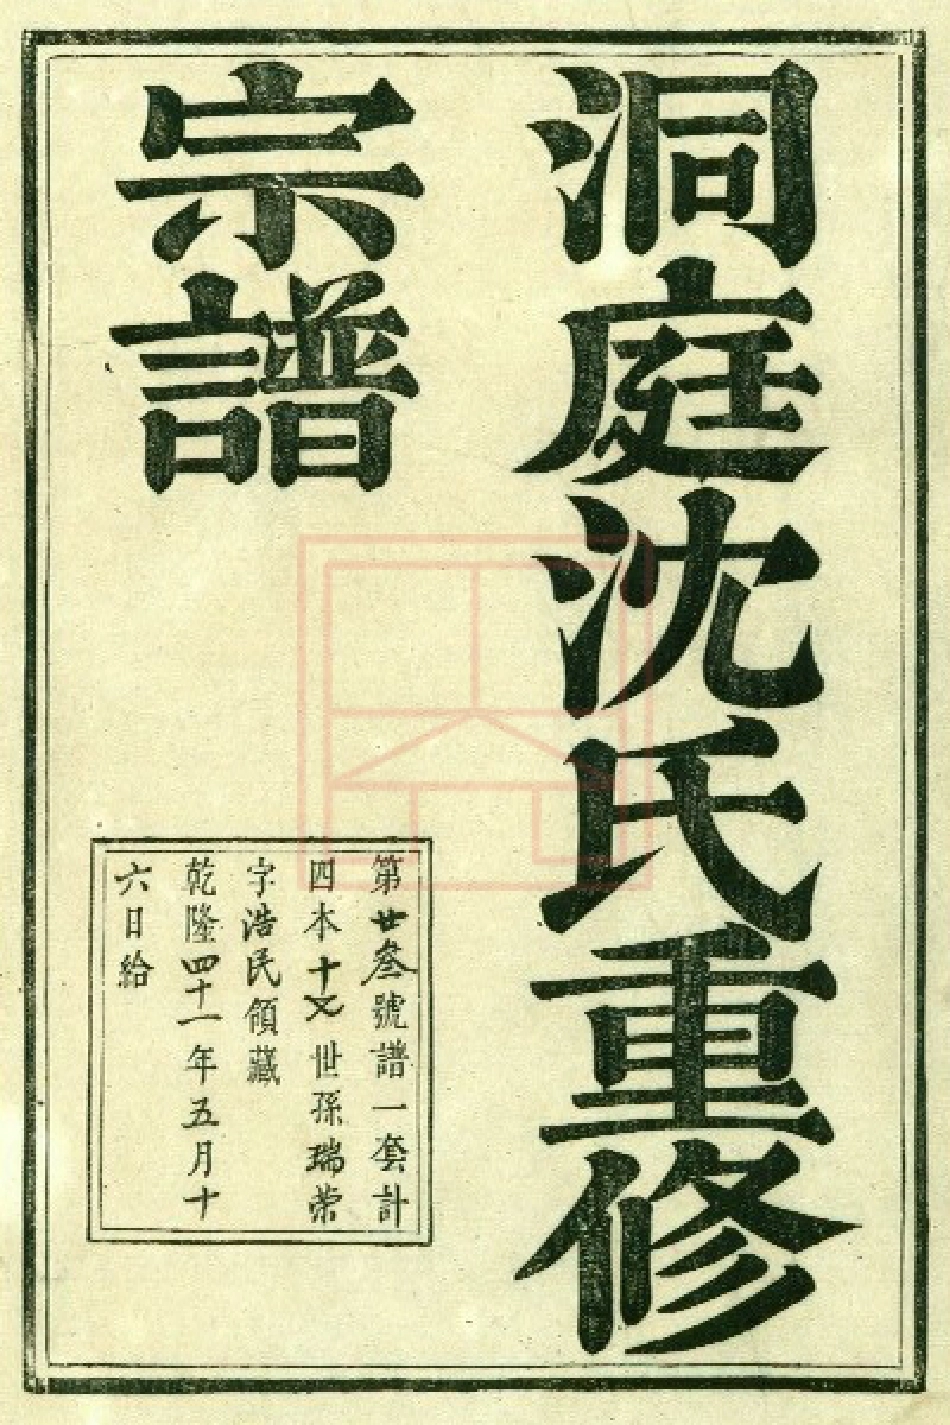 洞庭沈氏重修
宗譜
第廿叄號譜一套計
四本十文世孫瑞荣
字浩民領藏
乾隆四十一年五月十
六日給